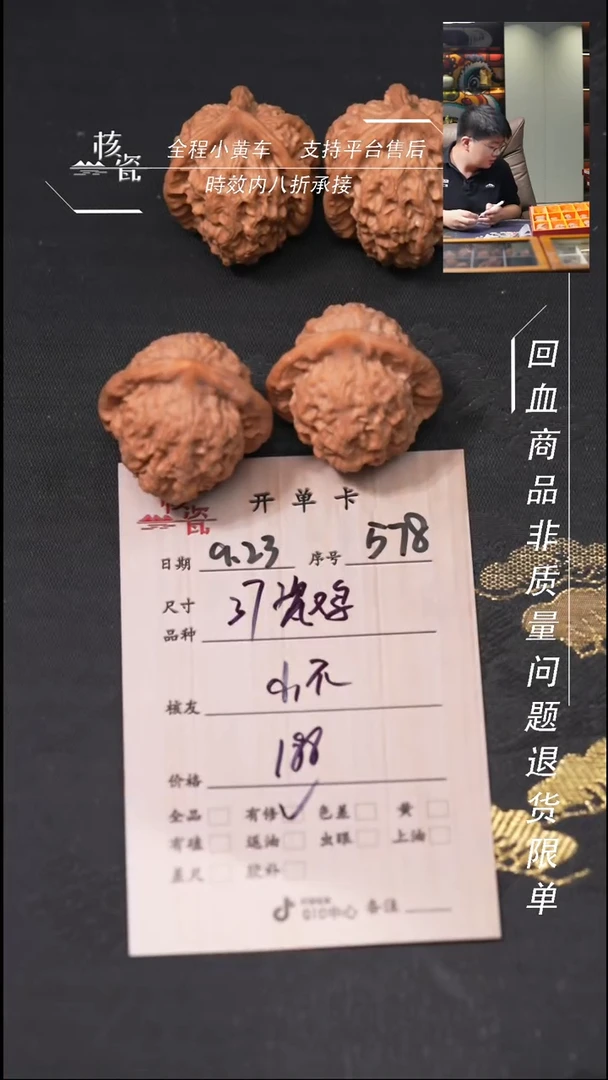 核瓷
全程小黄车 支持平台售后
時效内八折承接
回血商品非质量问题退货限单
核瓷
开单卡
日期 9.23 序号 578
尺寸 37瓷鸡
品种
核友 小不
价格 188
全品 有修✓ 色差 黄
有磕 返油 虫眼 上油
差尺 胶补
QIC中心 备注